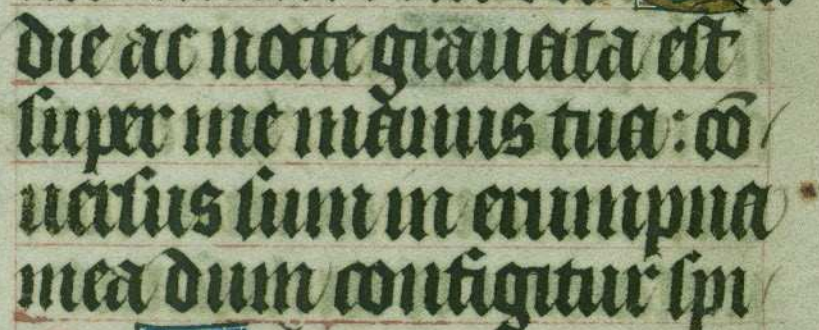 die ac nocte grauata est
super me manus tua : cō
uersus sum in erumpna
mea dum configitur spi